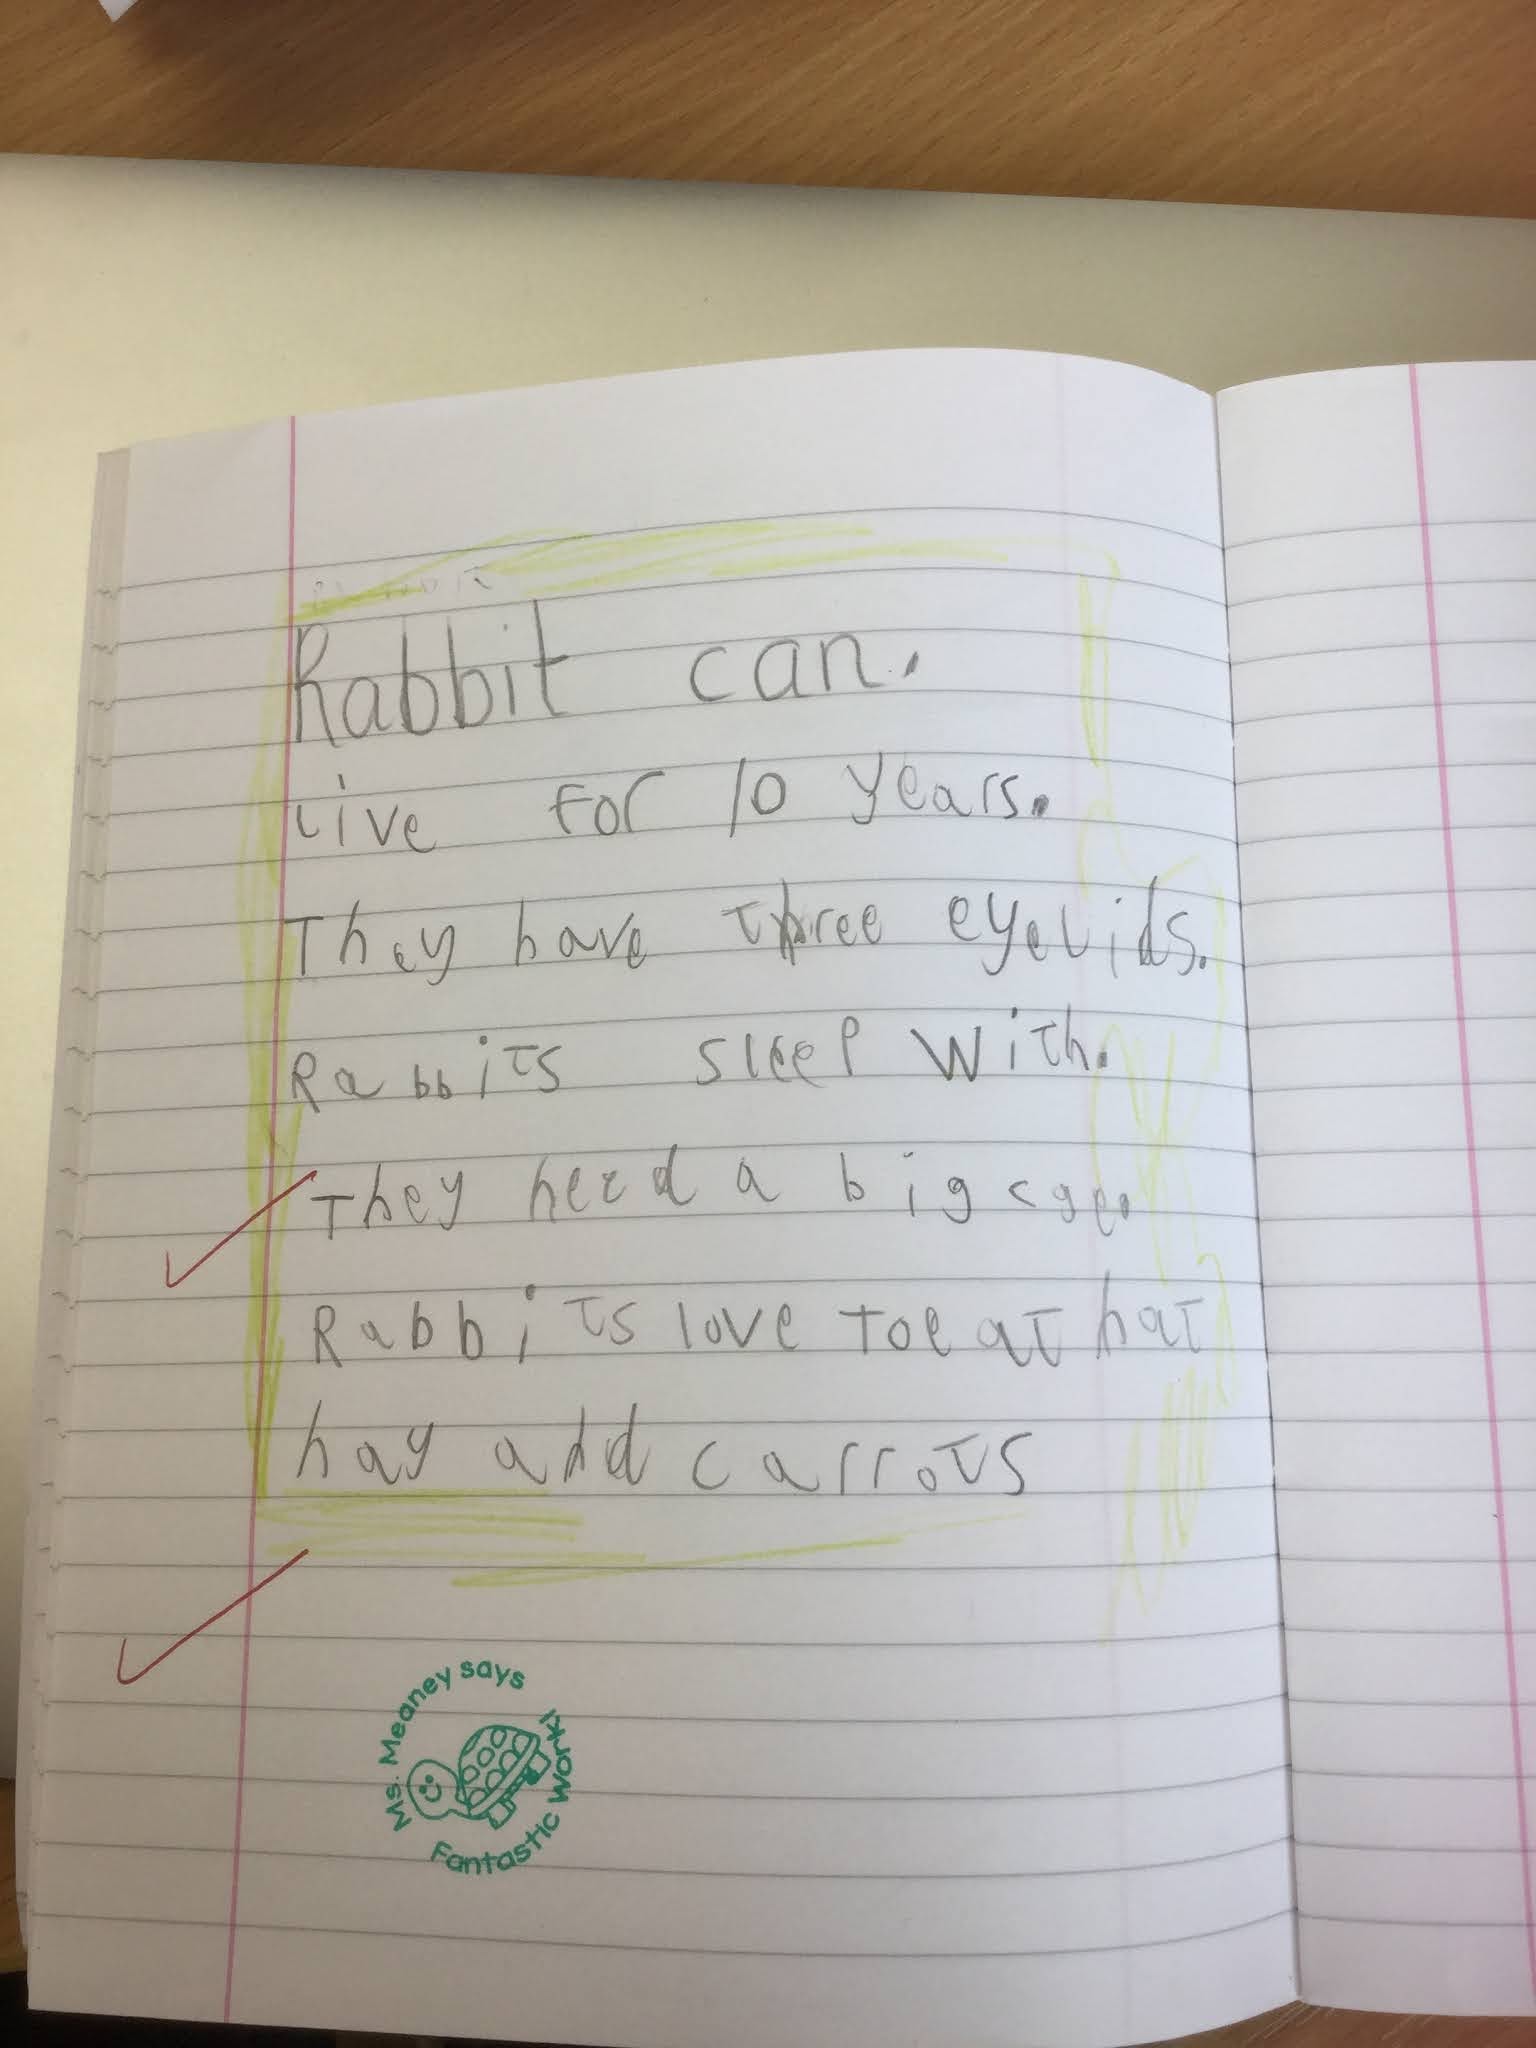 Rabbit can.
Live for 10 years.
They have three eyelids.
Rabbits sleep with.
They need a big cge.
Rabbits love to eat hat
hay and carrots
Ms. Meaney says
Fantastic Work!